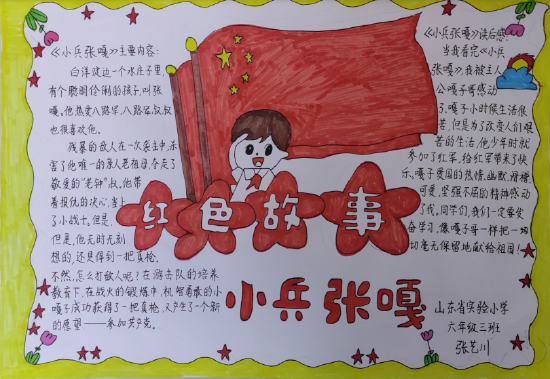 《小兵张嘎》主要内容:
白洋淀边一个水庄子里,
有个聪明伶俐的孩子,叫张
嘎。他热爱八路军,八路军叔叔
也很喜欢他。
残暴的敌人在一次袭击中,杀
害了他唯一的亲人老祖母,夺走了
敬爱的“老钟”叔,他带
着报仇的决心,当上
了小战士。但是,
但是,他无时无刻
想的,还是得到一把真枪。
不然,怎么打敌人呢?在游击队的培养
教育下,在战火的锻炼中,机智勇敢的小
嘎子成功获得了一把真枪,又产生了一个新
的愿望——参加共产党。
红色故事
小兵张嘎
《小兵张嘎》读后感:
当我看完《小兵
张嘎》,我被主人
公嘎子哥感动
了,嘎子小时候生活很
苦,但是为了改变人们艰
苦的生活,他少年时就
参加了红军,给红军带来了快
乐,嘎子爱国的热情,幽默、滑稽
可爱,坚强不屈的精神感动
了我。同学们,我们一定要发
奋学习,像嘎子哥一样把一切
切毫无保留地献给祖国!
山东省实验小学
六年级三班
张艺川